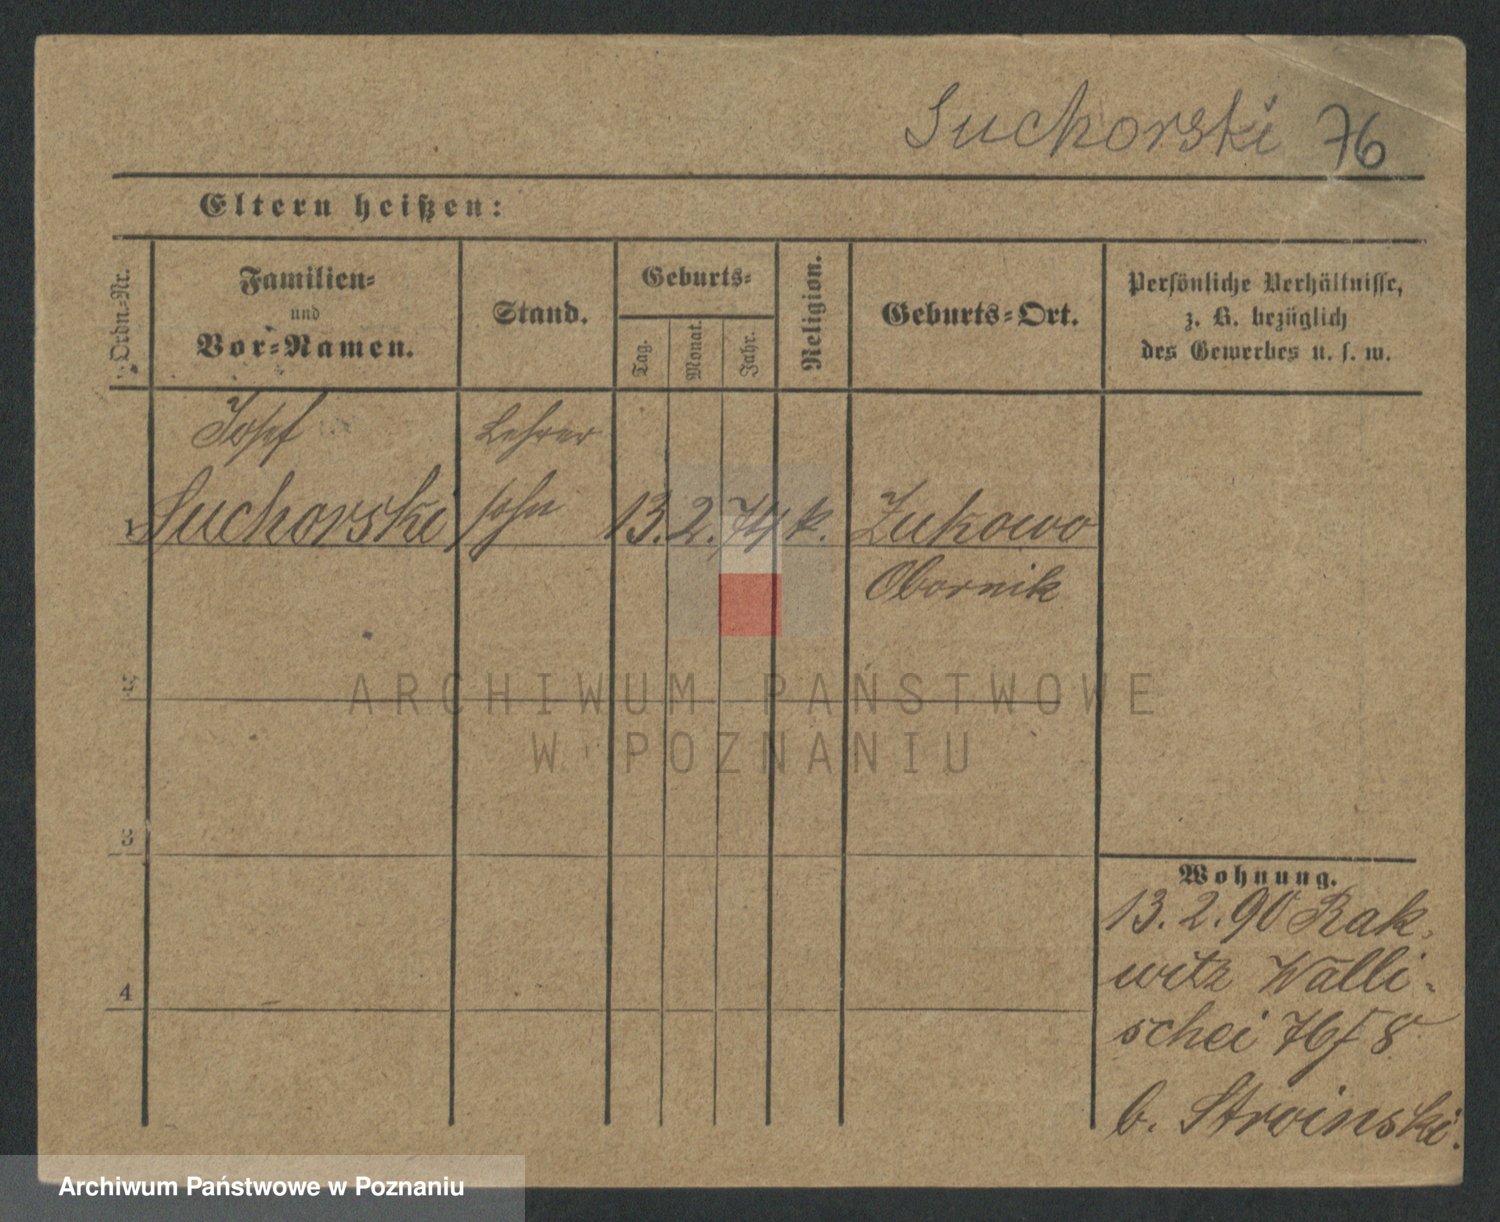 Suchorski 76
Eltern heißen:
Ordn.-Nr.
Familien-
und
Vor-Namen.
Stand.
Geburts-
Tag.
Monat.
Jahr.
Religion.
Geburts-Ort.
Persönliche Verhältnisse,
z. B. bezüglich
des Gewerbes u. s. w.
Josef Lehrer
1 Suchorski sohn 13. 2. 74 k. Zukowo
Obornik
2
ARCHIWUM PAŃSTWOWE
W POZNANIU
3
Wohnung.
13. 2. 90 Rak-
witz Walli-
schei 76/8
b. Stroinski.
4
Archiwum Państwowe w Poznaniu